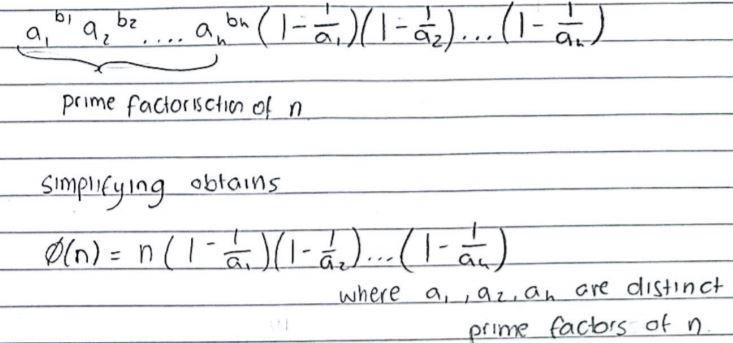 a₁^b₁ a₂^b₂ .... aₙ^bₙ (1 - 1/a₁)(1 - 1/a₂)...(1 - 1/aₙ)
prime factorisction of n
simplifying obtains
Ø(n) = n (1 - 1/a₁)(1 - 1/a₂)...(1 - 1/aₙ)
where a₁, a₂, aₙ are distinct
prime factors of n.